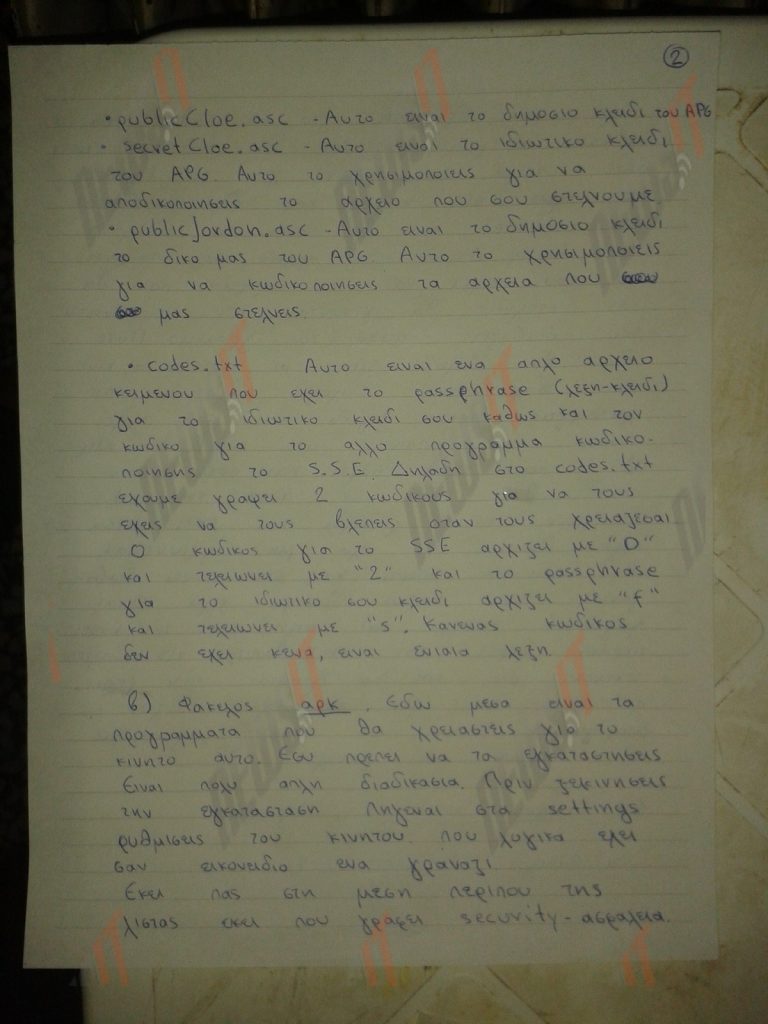 2
• publicCloe.asc - Αυτο ειναι το δημοσιο κλειδι του APG
• secretCloe.asc - Αυτο ειναι το ιδιωτικο κλειδι
του APG. Αυτο το χρησιμοποιεις για να
αποδικοποιησεις το αρχειο που σου στελνουμε
• publicJordon.asc - Αυτο ειναι το δημοσιο κλειδι
το δικο μας του APG. Αυτο το χρησιμοποιεις
για να κωδικοποιησεις τα αρχεια που
μας στελνεις.
• codes.txt Αυτο ειναι ενα απλο αρχειο
κειμενου που εχει το passphrase (λεξη-κλειδι)
για το ιδιωτικο κλειδι σου καθως και τον
κωδικο για το αλλο προγραμμα κωδικο-
ποιησης το S.S.E. Δηλαδη στο codes.txt
εχουμε γραψει 2 κωδικους για να τους
εχεις να τους βλεπεις οταν τους χρειαζεσαι.
Ο κωδικος για το SSE αρχιζει με "D"
και τελειωνει με "2" και το passphrase
για το ιδιωτικο σου κλειδι αρχιζει με "f"
και τελειωνει με "s". Κανενας κωδικος
δεν εχει κενα, ειναι ενιαια λεξη.
β) Φακελος apk. Εδω μεσα ειναι τα
προγραμματα που θα χρειαστεις για το
κινητο αυτο. Εσυ πρεπει να τα εγκαταστησεις
Ειναι πολυ απλη διαδικασια. Πριν ξεκινησεις
την εγκατασταση πηγεναι στα settings
ρυθμισεις του κινητου που λογικα εχει
σαν εικονειδιο ενα γραναζι.
Εκει πας στη μεση περιπου της
λιστας εκει που γραφει security - ασφαλεια.